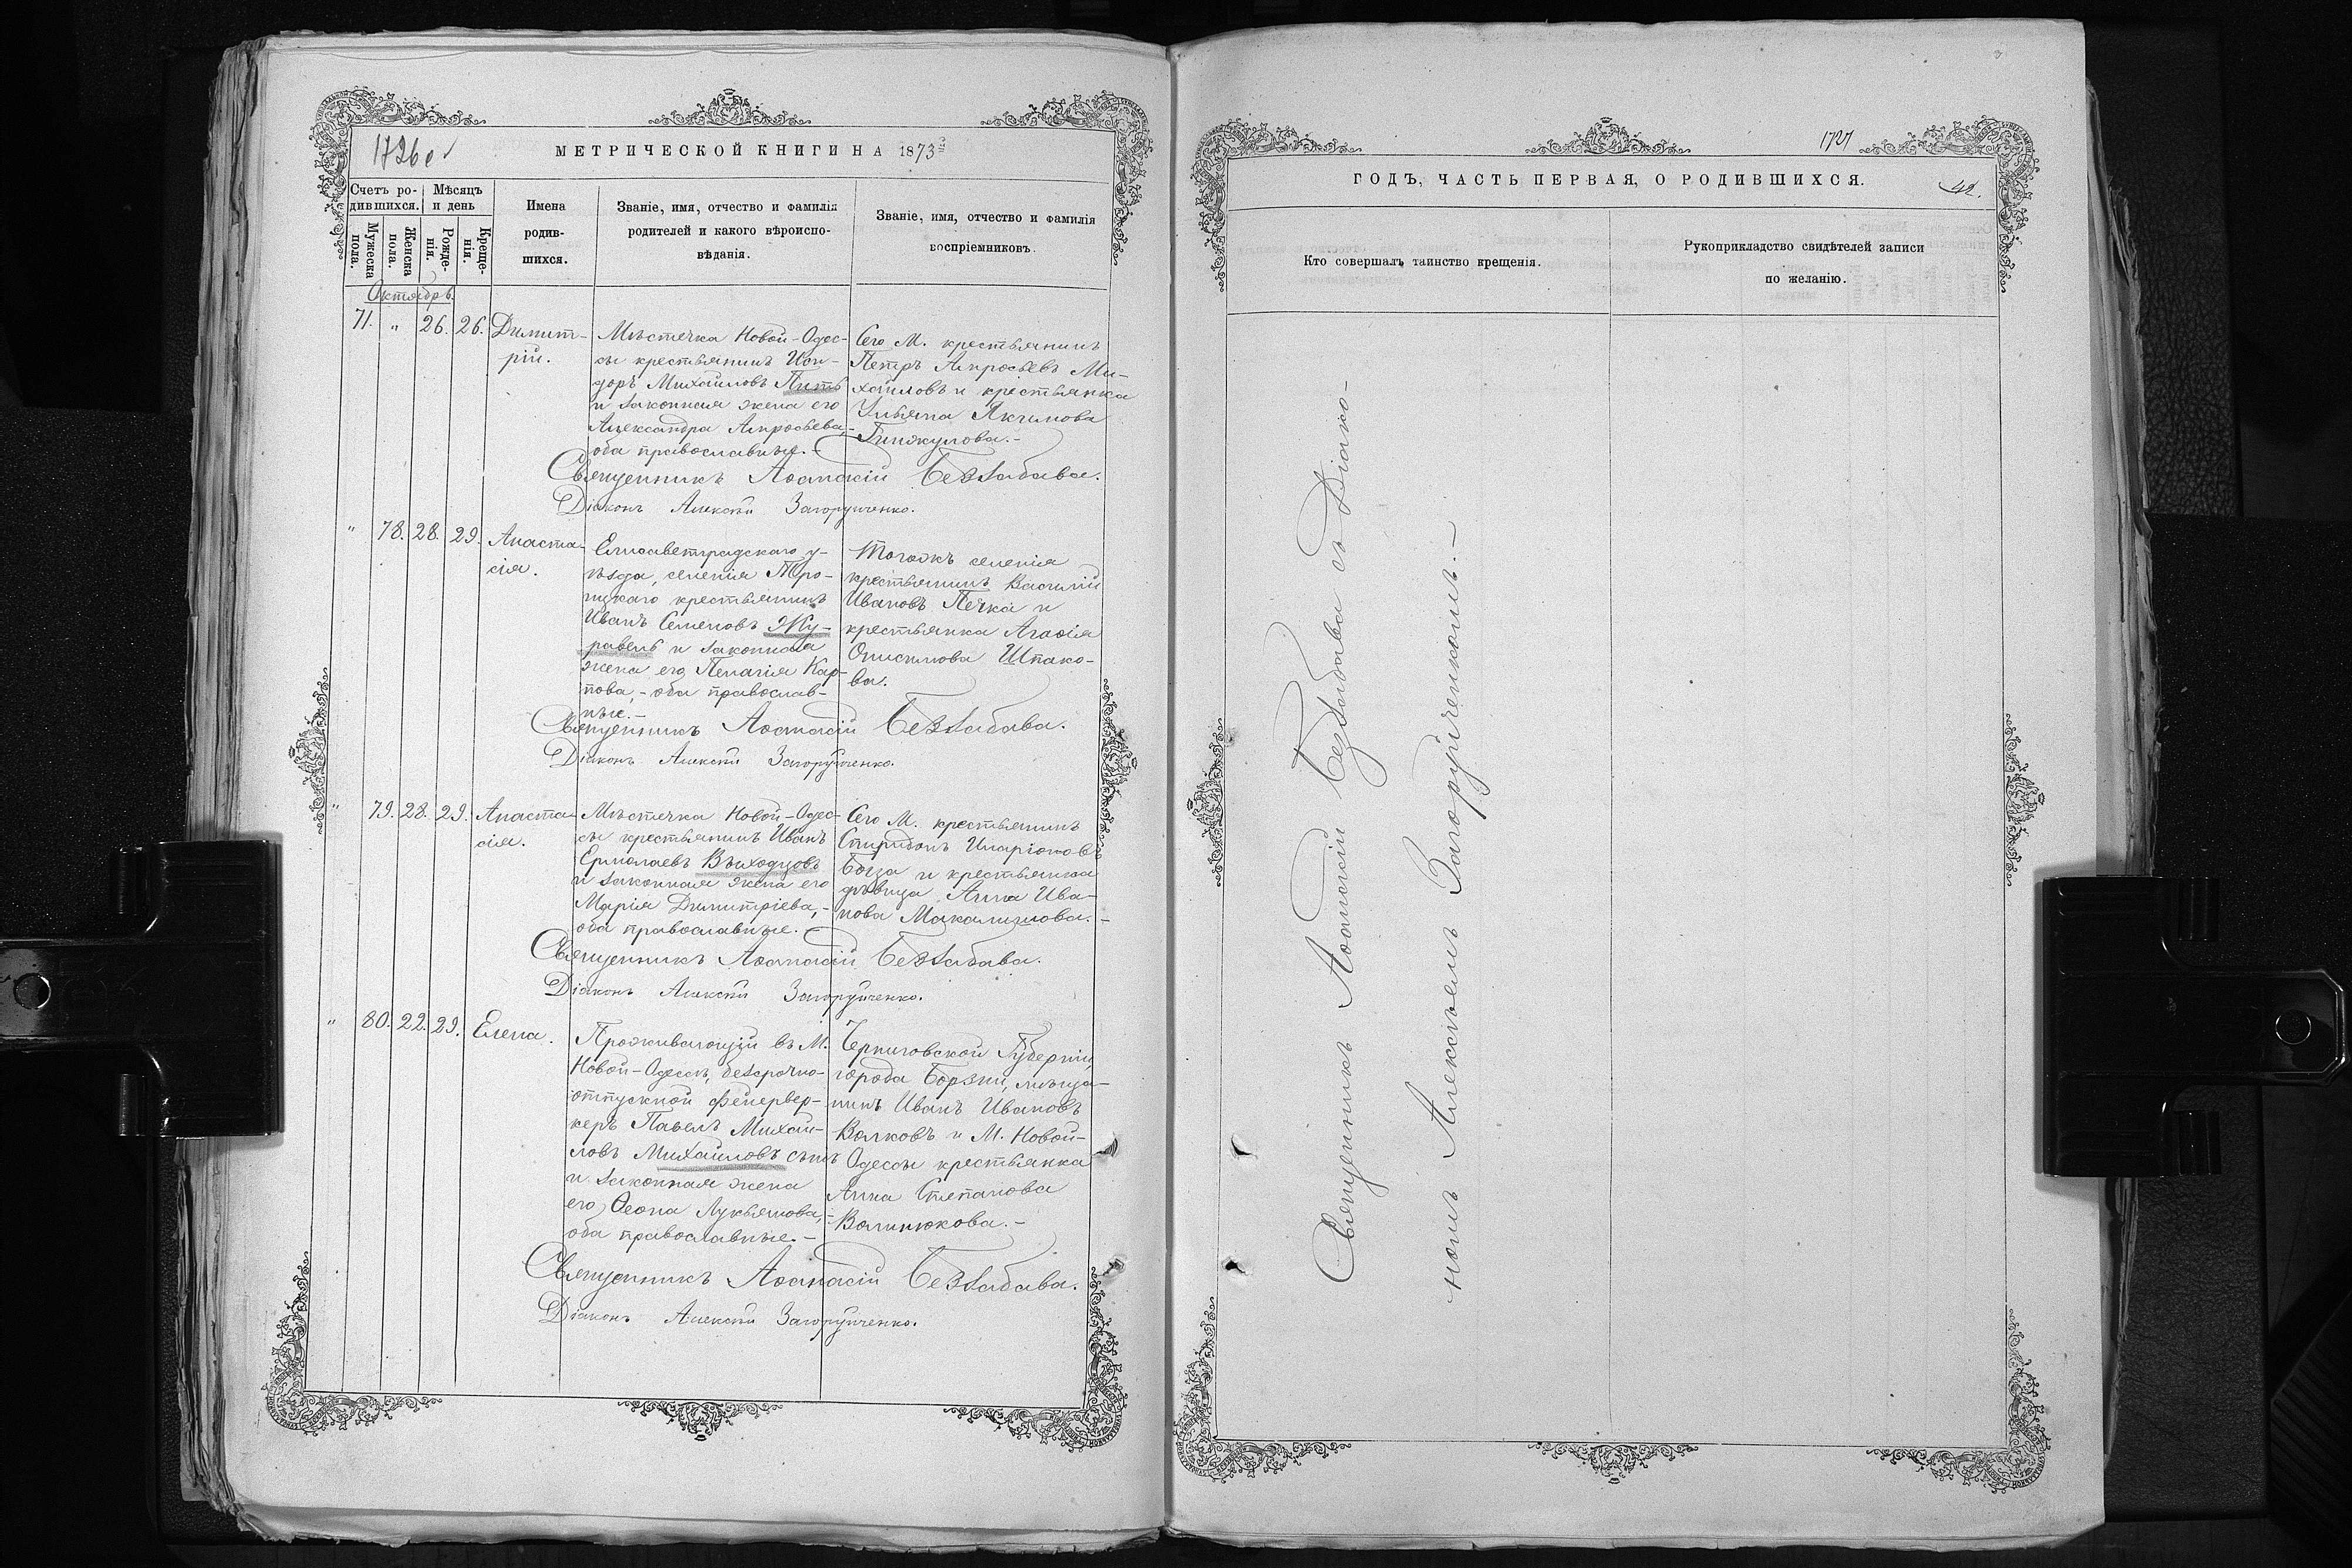 1726 об
МЕТРИЧЕСКОЙ КНИГИ НА 1873й
Счетъ ро-
дившихся.
Мѣсяцъ
и день
Мужеска
пола.
Женска
пола.
Рожде-
нія.
Креще-
нія.
Имена
родив-
шихся.
Званіе, имя, отчество и фамилія
родителей и какого вѣроиспо-
вѣданія.
Званіе, имя, отчество и фамилія
воспріемниковъ.
Октябрь.
71. „ 26. 26.
Димит-
рій.
Мѣстечка Новой-Одес-
сы крестьянинъ Иси-
доръ Михайловъ
и законная жена его
Александра Амросьева,-
оба православные.-
Сего М. крестьянинъ
Петръ Амросьевъ Ми-
хайловъ и крестьянка
Ульяна Якимова
Гинжулова.-
Священникъ Аѳанасій Беззабава.
Діаконъ Алексѣй Загоруйченко.
„ 78. 28. 29.
Анаста-
сія.
Елисаветградскаго у-
ѣзда, селенія Тро-
ицкаго крестьянинъ
Иванъ Семеновъ Жу-
равель и законная
жена его Пелагія Кар-
пова,- оба православ-
ные.-
Тогожъ селенія
крестьянинъ Василій
Ивановъ Печка и
крестьянка Агаѳія
Онисимова Шпако-
ва.
Священникъ Аѳанасій Беззабава.
Діаконъ Алексѣй Загоруйченко.
„ 79. 28. 29.
Анаста-
сія.
Мѣстечка Новой-Одес-
сы крестьянинъ Иванъ
Ермолаевъ Выходцовъ
и законная жена его
Марія Димитріева,-
оба православные.-
Сего М. крестьянинъ
Спиридонъ Иларіоновъ
Боза и крестьянка
дѣвица Анна Ива-
нова Макализлова.-
Священникъ Аѳанасій Беззабава.
Діаконъ Алексѣй Загоруйченко.
„ 80. 22. 29.
Елена.
Проживающій въ М.
Новой-Одессѣ, безсрочно-
отпускной фейервер-
керъ Павелъ Михай-
ловъ Михайловъ сынъ
и законная жена
его Ѳеона Лукьянова,-
оба православные.-
Черниговской Губерніи,
города Борзни, мѣща-
нинъ Иванъ Ивановъ
Волковъ и М. Новой-
Одессы крестьянка
Анна Степанова
Валинюкова.-
Священникъ Аѳанасій Беззабава.
Діаконъ Алексѣй Загоруйченко.
1727
ГОДЪ, ЧАСТЬ ПЕРВАЯ, О РОДИВШИХСЯ.
42.
Кто совершалъ таинство крещенія.
Рукоприкладство свидѣтелей записи
по желанію.
Священникъ Аѳанасій Беззабава съ Діако-
номъ Алексѣемъ Загоруйченкомъ.-